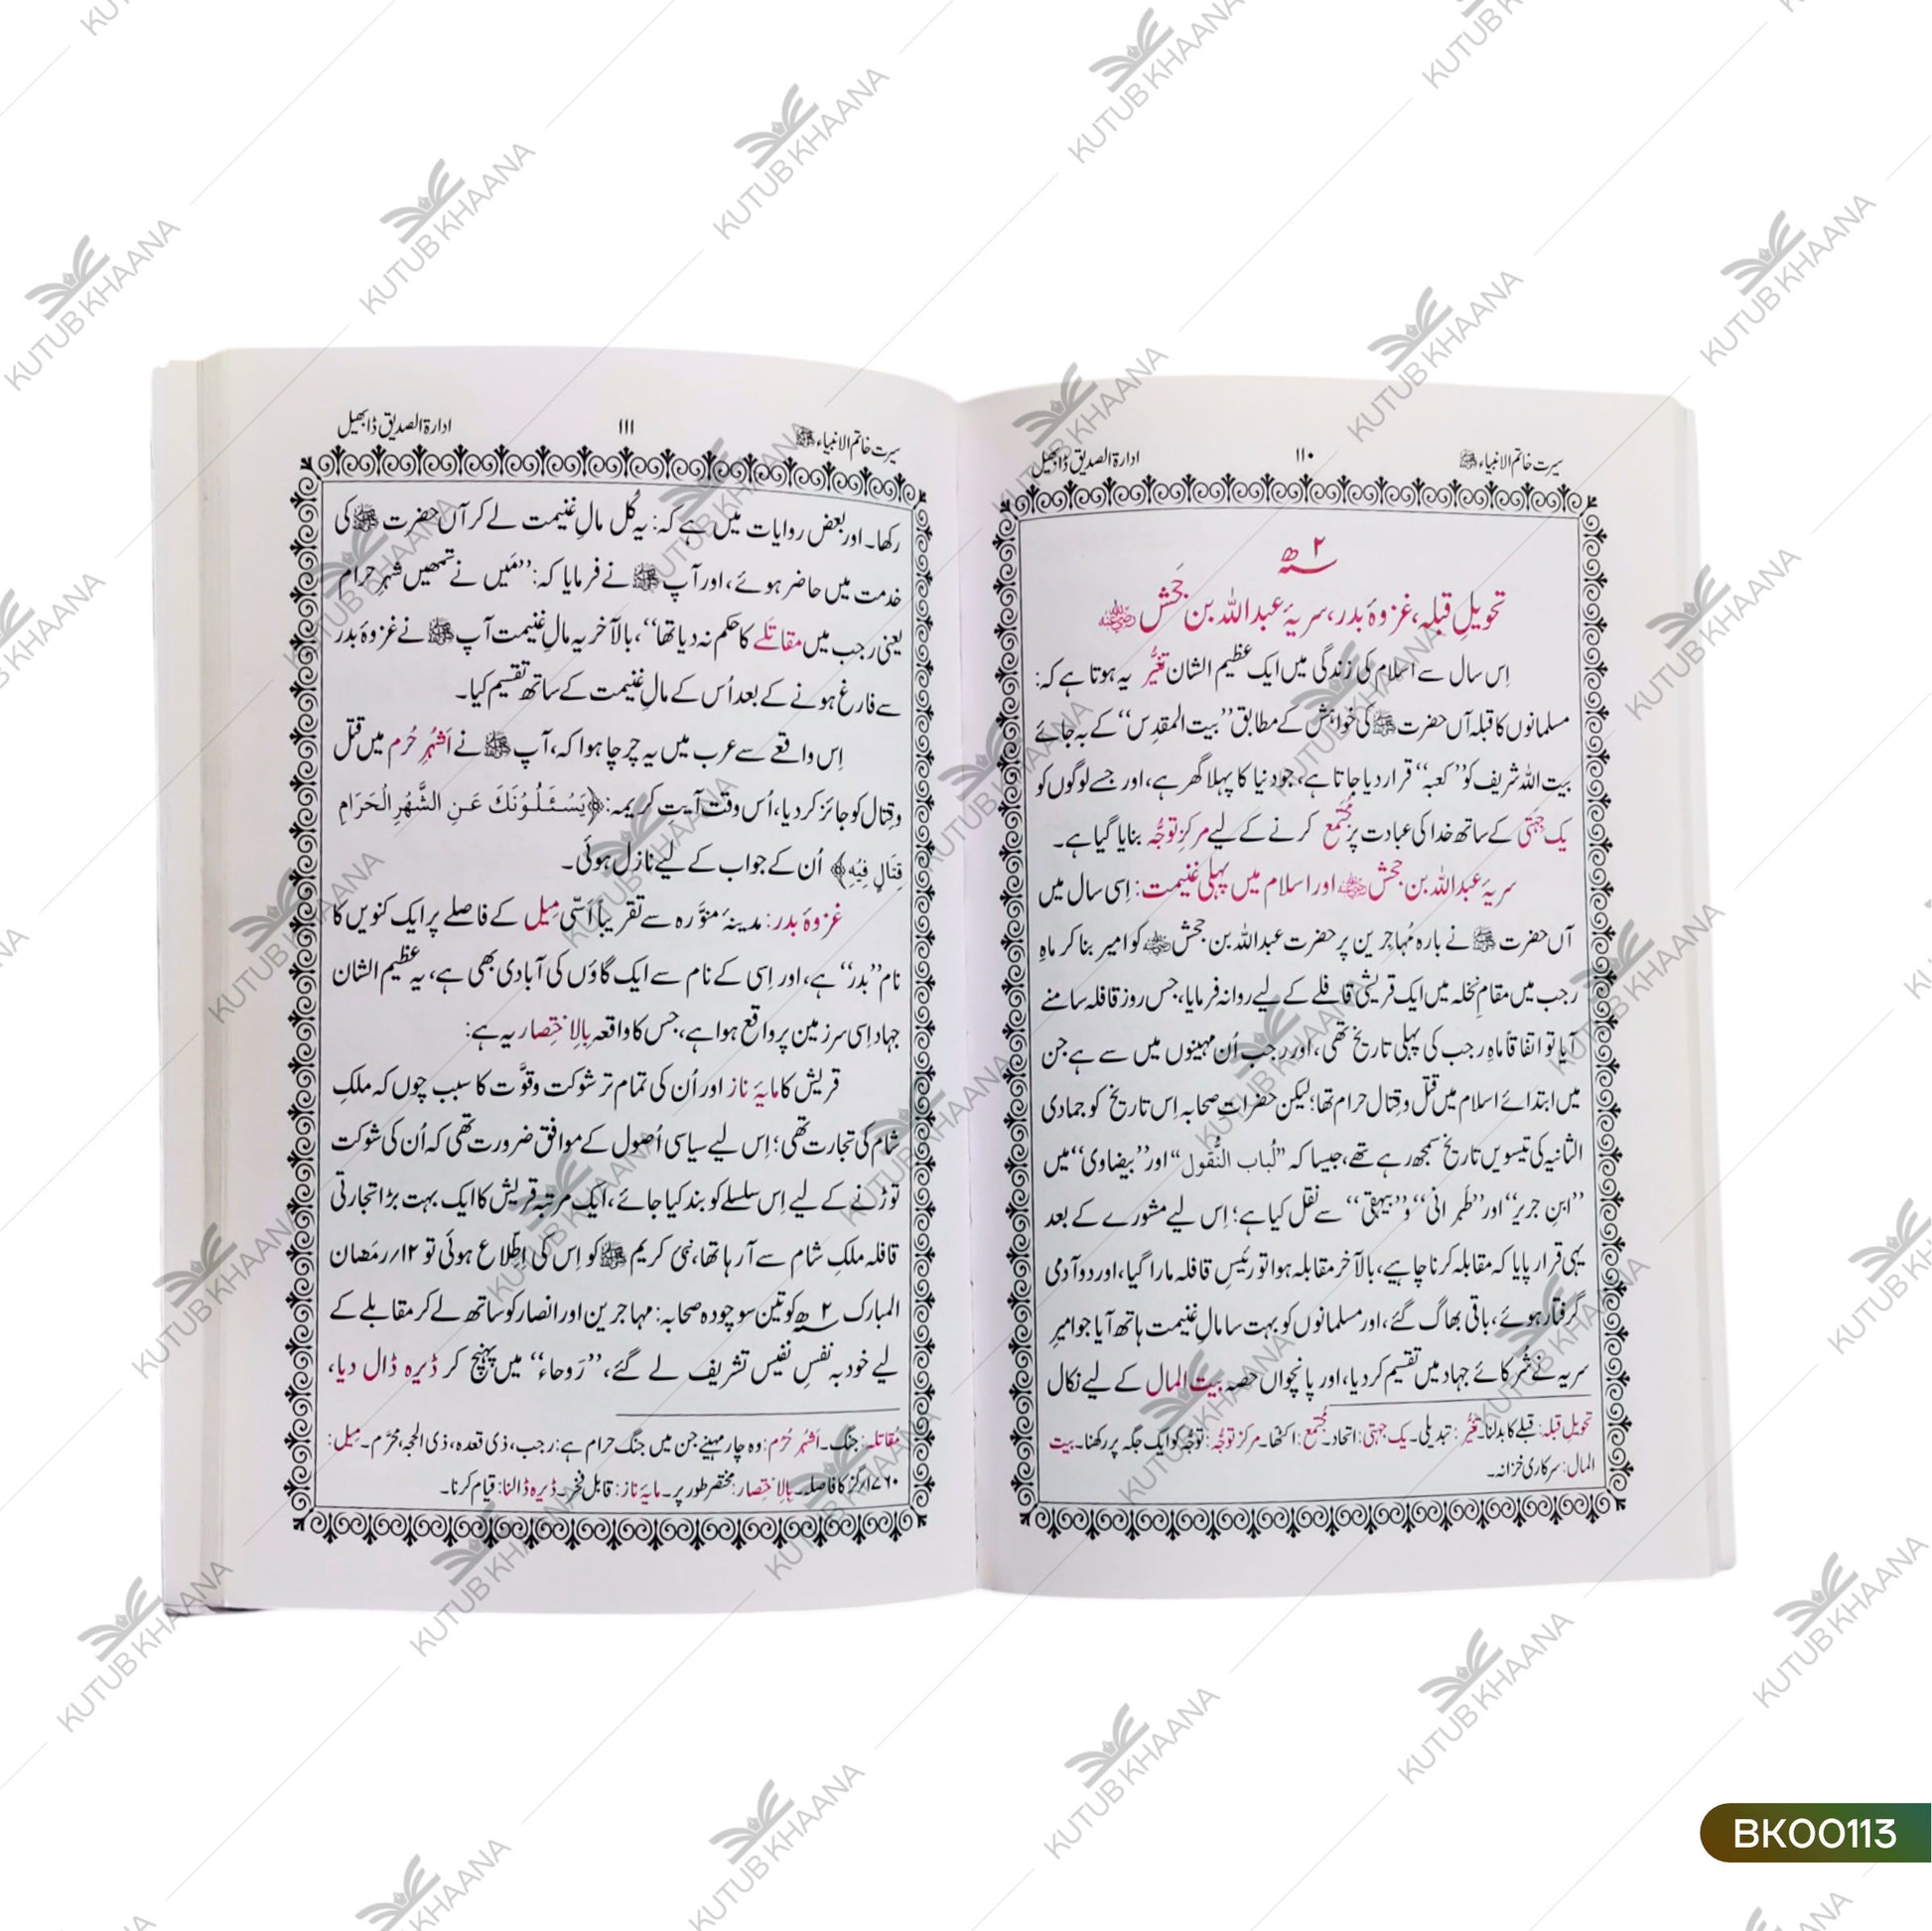 سیرت خاتم الانبیاء ﷺ ۱۱۰ ادارۃ الصدیق ڈابھیل
۲ ھ
تحویلِ قبلہ، غزوۂ بدر، سریۂ عبداللہ بن جَحش ؓ
اِس سال سے اسلام کی زندگی میں ایک عظیم الشان تغیُّر یہ ہوتا ہے کہ:
مسلمانوں کا قبلہ آں حضرت ﷺ کی خواہش کے مطابق ’’بیت المقدِس‘‘ کے بہ جائے
بیت اللہ شریف کو ’’کعبہ‘‘ قرار دیا جاتا ہے، جو دنیا کا پہلا گھر ہے، اور جسے لوگوں کو
یک جہتی کے ساتھ خدا کی عبادت پر مُجتمع کرنے کے لیے مرکزِ توجُّہ بنایا گیا ہے۔
سریۂ عبداللہ بن جحش ؓ اور اسلام میں پہلی غنیمت: اِسی سال میں
آں حضرت ﷺ نے بارہ مُہاجرین پر حضرت عبداللہ بن جحش ؓ کو امیر بنا کر ماہِ
رجب میں مقامِ نخلہ میں ایک قریشی قافلے کے لیے روانہ فرمایا، جس روز قافلہ سامنے
آیا تو اتفاقاً ماہِ رجب کی پہلی تاریخ تھی، اور رجب اُن مہینوں میں سے ہے جن
میں ابتدائے اسلام میں قتل و قِتال حرام تھا؛ لیکن حضراتِ صحابہ اِس تاریخ کو جمادی
الثانیہ کی تیسویں تاریخ سمجھ رہے تھے، جیسا کہ ’’لُباب النُّقُول‘‘ اور ’’بیضاوی‘‘ میں
’’ابنِ جریر‘‘ اور ’’طَبرانی‘‘ و ’’بیہقی‘‘ سے نقل کیا ہے؛ اِس لیے مشورے کے بعد
یہی قرار پایا کہ مقابلہ کرنا چاہیے، بالآخر مقابلہ ہوا تو رئیسِ قافلہ مارا گیا، اور دو آدمی
گرفتار ہوئے، باقی بھاگ گئے، اور مسلمانوں کو بہت سا مالِ غنیمت ہاتھ آیا جو امیرِ
سریہ نے شُرکائے جہاد میں تقسیم کر دیا، اور پانچواں حصہ بیت المال کے لیے نکال
تحویلِ قبلہ: قبلے کا بدلنا۔ تغیُّر: تبدیلی۔ یک جہتی: اتحاد۔ مُجتمع: اکٹھا۔ مرکزِ توجُّہ: توجّہ کو ایک جگہ پر رکھنا۔ بیت
المال: سرکاری خزانہ۔
سیرت خاتم الانبیاء ﷺ ۱۱۱ ادارۃ الصدیق ڈابھیل
رکھا۔ اور بعض روایات میں ہے کہ: یہ کُل مالِ غنیمت لے کر آں حضرت ﷺ کی
خدمت میں حاضر ہوئے، اور آپ ﷺ نے فرمایا کہ: ’’مَیں نے تمھیں شہرِ حرام
یعنی رجب میں مقاتَلے کا حکم نہ دیا تھا‘‘، بالآخر یہ مالِ غنیمت آپ ﷺ نے غزوۂ بدر
سے فارغ ہونے کے بعد اُس کے مالِ غنیمت کے ساتھ تقسیم کیا۔
اِس واقعے سے عرب میں یہ چرچا ہوا کہ، آپ ﷺ نے اَشہُرِ حُرم میں قتل
و قِتال کو جائز کر دیا، اُس وقت آیت کریمہ: ﴿يَسْئَلُوْنَكَ عَنِ الشَّهْرِ الْحَرَامِ
قِتَالٍ فِيْهِ﴾ اُن کے جواب کے لیے نازل ہوئی۔
غزوۂ بدر: مدینۂ منوَّرہ سے تقریباً اَسّی مِیل کے فاصلے پر ایک کنویں کا
نام ’’بدر‘‘ ہے، اور اِسی کے نام سے ایک گاؤں کی آبادی بھی ہے، یہ عظیم الشان
جہاد اِسی سرزمین پر واقع ہوا ہے، جس کا واقعہ بِالاِختِصار یہ ہے:
قریش کا مایۂ ناز اور اُن کی تمام تر شوکت و قوَّت کا سبب چوں کہ ملکِ
شام کی تجارت تھی؛ اِس لیے سیاسی اُصول کے موافق ضرورت تھی کہ اُن کی شوکت
توڑنے کے لیے اِس سلسلے کو بند کیا جائے، ایک مرتبہ قریش کا ایک بہت بڑا تجارتی
قافلہ ملکِ شام سے آ رہا تھا، نبی کریم ﷺ کو اِس کی اِطِّلاع ہوئی تو ۱۲/ رمَضان
المبارک ۲ ھ کو تین سو چودہ صحابہ: مہاجرین اور انصار کو ساتھ لے کر مقابلے کے
لیے خود بہ نفسِ نفیس تشریف لے گئے، ’’رَوحاء‘‘ میں پہنچ کر ڈیرہ ڈال دیا،
مُقاتَلہ: جنگ۔ اَشہُرِ حُرُم: وہ چار مہینے جن میں جنگ حرام ہے: رجب، ذی قعدہ، ذی الحجہ، محرَّم۔ مِیل:
۱۷۶۰ گز کا فاصلہ۔ بِالاِختِصار: مختصر طور پر۔ مایۂ ناز: قابلِ فخر۔ ڈیرہ ڈالنا: قیام کرنا۔
KUTUB KHAANA
BK00113